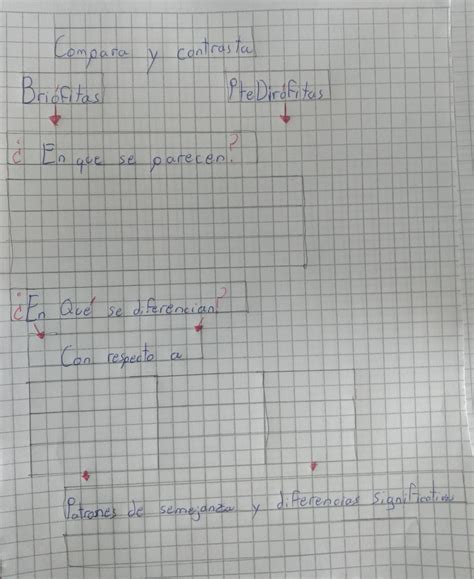 Compara y contrasta
Briófitas PteDirófitas
¿ En que se parecen?
¿En Qué se diferencian?
Con respecto a
Patrones de semejanza y diferencias significativas